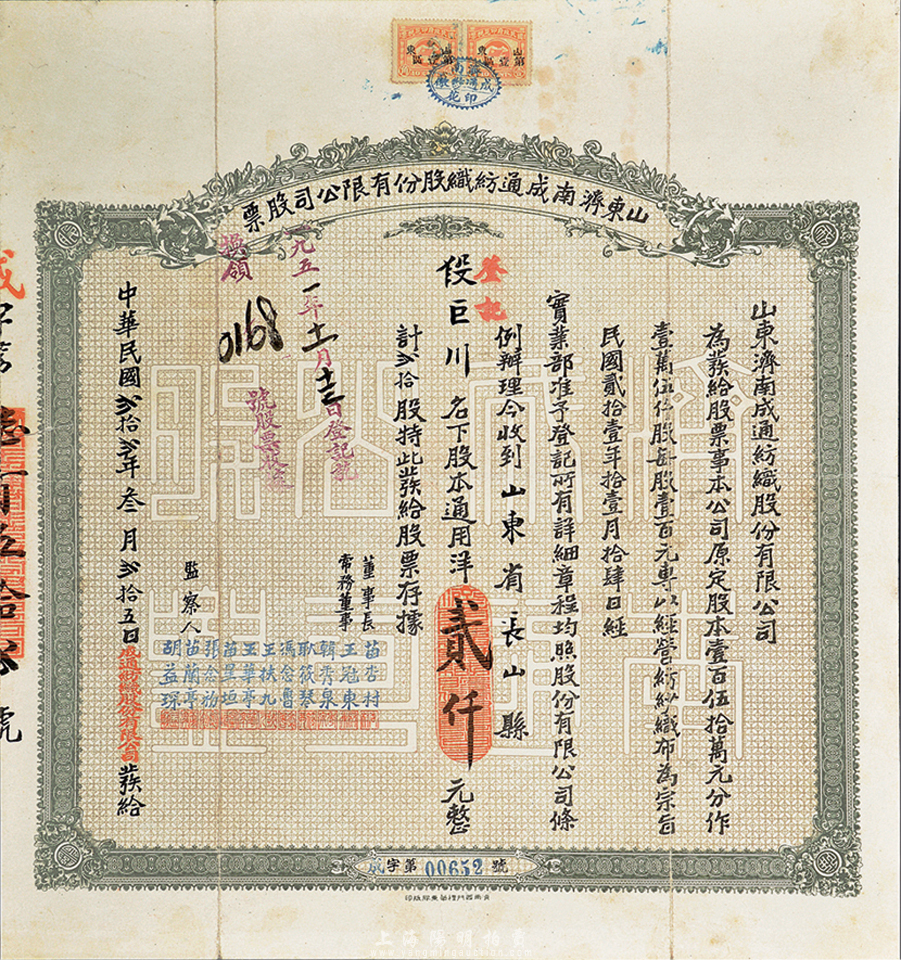 山東
第壹區
山東
第壹區
濟南
成通紡織
印花
山東濟南成通紡織股份有限公司股票
山東濟南成通紡織股份有限公司
為發給股票事本公司原定股本壹百伍拾萬元分作
壹萬伍仟股每股壹百元專以經營紡紗織布為宗旨
民國貳拾壹年拾壹月拾肆日經
實業部准予登記所有詳細章程均照股份有限公司條
例辦理今收到山東省長山縣
登記
段巨川名下股本通用洋貳仟元整
計貳拾股特此發給股票存據
一九五一年十一月十三日登記號
換領
0168
號股票收
董事長
苗杏村
常務董事
王冠東
韓秀泉
耿筱琴
馮念魯
王扶九
王華亭
苗星垣
監察人
張念
苗蘭亭
胡益琛
中華民國貳拾貳年叁月貳拾五日成通紡織股份有限公司發給
成字第00652號
成字第
號
上海陽明拍賣